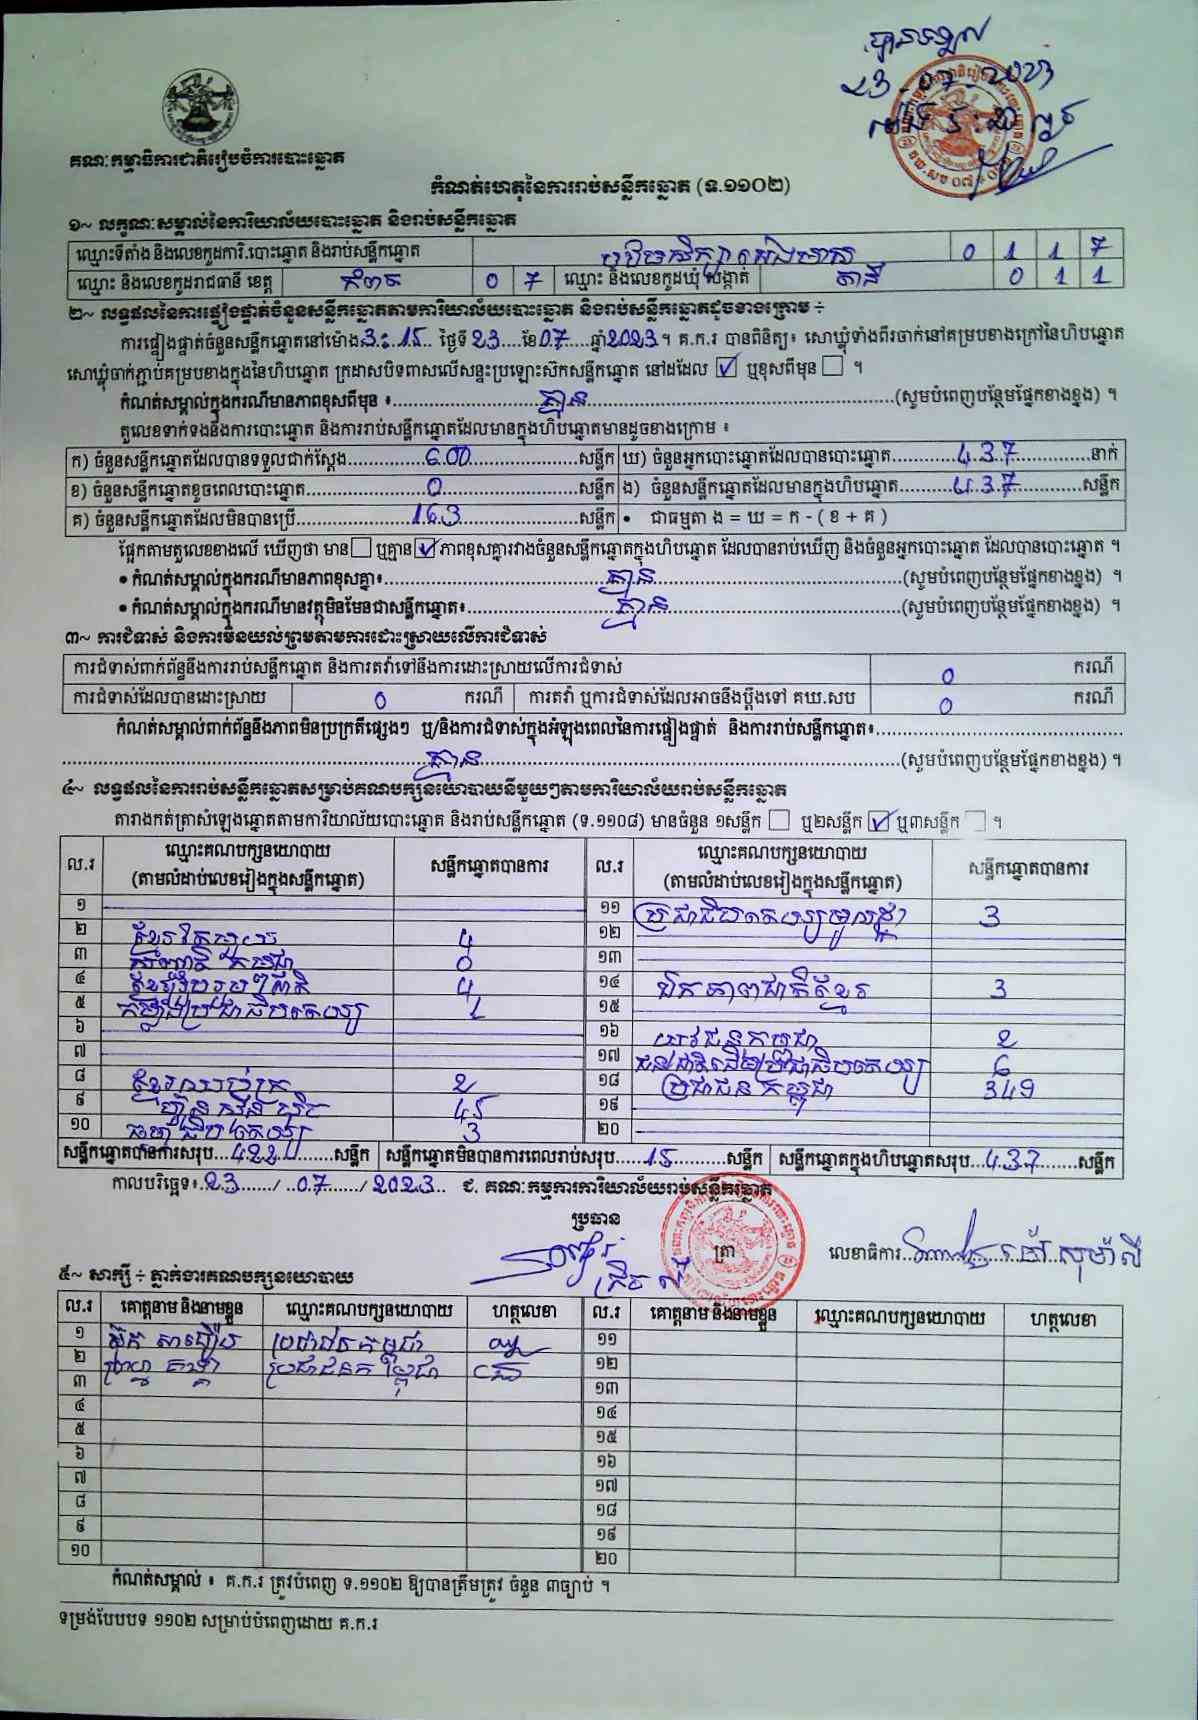 បានទទួល
23-07-2023
គណៈកម្មាធិការជាតិរៀបចំការបោះឆ្នោត
កំណត់ហេតុនៃការរាប់សន្លឹកឆ្នោត (ទ.១១០២)
១~ លក្ខណៈសម្គាល់នៃការិយាល័យបោះឆ្នោត និងរាប់សន្លឹកឆ្នោត
ឈ្មោះទីតាំង និងលេខកូដការិ.បោះឆ្នោត និងរាប់សន្លឹកឆ្នោត 0 1 1 7
ឈ្មោះ និងលេខកូដរាជធានី ខេត្ត កំពត 0 7 ឈ្មោះ និងលេខកូដឃុំ សង្កាត់ តានី 0 1 1
២~ លទ្ធផលនៃការផ្ទៀងផ្ទាត់ចំនួនសន្លឹកឆ្នោតតាមការិយាល័យបោះឆ្នោត និងរាប់សន្លឹកឆ្នោតដូចខាងក្រោម ÷
ការផ្ទៀងផ្ទាត់ចំនួនសន្លឹកឆ្នោតនៅម៉ោង 3:15 ថ្ងៃទី 23 ខែ 07 ឆ្នាំ 2023 ។ គ.ក.រ បានពិនិត្យ៖ សោឃ្លុំទាំងពីរចាក់នៅគម្របខាងក្រៅនៃហិបឆ្នោត
សោឃ្លុំចាក់ភ្ជាប់គម្របខាងក្នុងនៃហិបឆ្នោត ក្រដាសបិទពាសលើសន្ទះប្រឡោះស៊កសន្លឹកឆ្នោត នៅដដែល ☑ ឬខុសពីមុន ☐ ។
កំណត់សម្គាល់ក្នុងករណីមានភាពខុសពីមុន ៖ គ្មាន (សូមបំពេញបន្ថែមផ្នែកខាងខ្នង) ។
តួលេខទាក់ទងនឹងការបោះឆ្នោត និងការរាប់សន្លឹកឆ្នោតដែលមានក្នុងហិបឆ្នោតមានដូចខាងក្រោម ៖
ក) ចំនួនសន្លឹកឆ្នោតដែលបានទទួលជាក់ស្តែង 600 សន្លឹក ឃ) ចំនួនអ្នកបោះឆ្នោតដែលបានបោះឆ្នោត 437 នាក់
ខ) ចំនួនសន្លឹកឆ្នោតខូចពេលបោះឆ្នោត 0 សន្លឹក ង) ចំនួនសន្លឹកឆ្នោតដែលមានក្នុងហិបឆ្នោត 437 សន្លឹក
គ) ចំនួនសន្លឹកឆ្នោតដែលមិនបានប្រើ 163 សន្លឹក • ជាធម្មតា ង = ឃ = ក - ( ខ + គ )
ផ្អែកតាមតួលេខខាងលើ ឃើញថា មាន ☐ ឬគ្មាន ☑ ភាពខុសគ្នារវាងចំនួនសន្លឹកឆ្នោតក្នុងហិបឆ្នោត ដែលបានរាប់ឃើញ និងចំនួនអ្នកបោះឆ្នោត ដែលបានបោះឆ្នោត ។
• កំណត់សម្គាល់ក្នុងករណីមានភាពខុសគ្នា៖ គ្មាន (សូមបំពេញបន្ថែមផ្នែកខាងខ្នង) ។
• កំណត់សម្គាល់ក្នុងករណីមានវត្ថុមិនមែនជាសន្លឹកឆ្នោត៖ គ្មាន (សូមបំពេញបន្ថែមផ្នែកខាងខ្នង) ។
៣~ ការជំទាស់ និងការមិនយល់ព្រមតាមការដោះស្រាយលើការជំទាស់
ការជំទាស់ពាក់ព័ន្ធនឹងការរាប់សន្លឹកឆ្នោត និងការតវ៉ាទៅនឹងការដោះស្រាយលើការជំទាស់ 0 ករណី
ការជំទាស់ដែលបានដោះស្រាយ 0 ករណី ការតវ៉ា ឬការជំទាស់ដែលអាចនឹងប្តឹងទៅ គឃ.សប 0 ករណី
កំណត់សម្គាល់ពាក់ព័ន្ធនឹងភាពមិនប្រក្រតីផ្សេងៗ ឬ/និងការជំទាស់ក្នុងអំឡុងពេលនៃការផ្ទៀងផ្ទាត់ និងការរាប់សន្លឹកឆ្នោត៖
គ្មាន (សូមបំពេញបន្ថែមផ្នែកខាងខ្នង) ។
៤~ លទ្ធផលនៃការរាប់សន្លឹកឆ្នោតសម្រាប់គណបក្សនយោបាយនីមួយៗតាមការិយាល័យរាប់សន្លឹកឆ្នោត
តារាងកត់ត្រាសំឡេងឆ្នោតតាមការិយាល័យបោះឆ្នោត និងរាប់សន្លឹកឆ្នោត (ទ.១១០៨) មានចំនួន ១សន្លឹក ☐ ឬ២សន្លឹក ☑ ឬ៣សន្លឹក ☐ ។
ល.រ ឈ្មោះគណបក្សនយោបាយ (តាមលំដាប់លេខរៀងក្នុងសន្លឹកឆ្នោត) សន្លឹកឆ្នោតបានការ ល.រ ឈ្មោះគណបក្សនយោបាយ (តាមលំដាប់លេខរៀងក្នុងសន្លឹកឆ្នោត) សន្លឹកឆ្នោតបានការ
១ ១១ ប្រជាធិបតេយ្យមូលដ្ឋាន 3
២ 4 ១២
៣ 0 ១៣
៤ 4 ១៤ ឯកភាពជាតិខ្មែរ 3
៥ កម្លាំងប្រជាធិបតេយ្យ 1 ១៥
៦ ១៦ យុវជនកម្ពុជា 2
៧ ១៧ ជនជាតិដើមប្រជាធិបតេយ្យ 6
៨ 2 ១៨ ប្រជាជនកម្ពុជា 349
៩ ហ៊្វុនស៊ិនប៉ិច 45 ១៩
១០ 3 ២០
សន្លឹកឆ្នោតបានការសរុប 422 សន្លឹក សន្លឹកឆ្នោតមិនបានការពេលរាប់សរុប 15 សន្លឹក សន្លឹកឆ្នោតក្នុងហិបឆ្នោតសរុប 437 សន្លឹក
កាលបរិច្ឆេទ៖ 23 / 07 / 2023 ជ. គណៈកម្មការការិយាល័យរាប់សន្លឹកឆ្នោត
ប្រធាន
ត្រា លេខាធិការ
៥~ សាក្សី ÷ ភ្នាក់ងារគណបក្សនយោបាយ
ល.រ គោត្តនាម និងនាមខ្លួន ឈ្មោះគណបក្សនយោបាយ ហត្ថលេខា ល.រ គោត្តនាម និងនាមខ្លួន ឈ្មោះគណបក្សនយោបាយ ហត្ថលេខា
១ ប្រជាជនកម្ពុជា ១១
២ ប្រជាជនកម្ពុជា ១២
៣ ១៣
៤ ១៤
៥ ១៥
៦ ១៦
៧ ១៧
៨ ១៨
៩ ១៩
១០ ២០
កំណត់សម្គាល់ ៖ គ.ក.រ ត្រូវបំពេញ ទ.១១០២ ឱ្យបានត្រឹមត្រូវ ចំនួន ៣ច្បាប់ ។
ទម្រង់បែបបទ ១១០២ សម្រាប់បំពេញដោយ គ.ក.រ